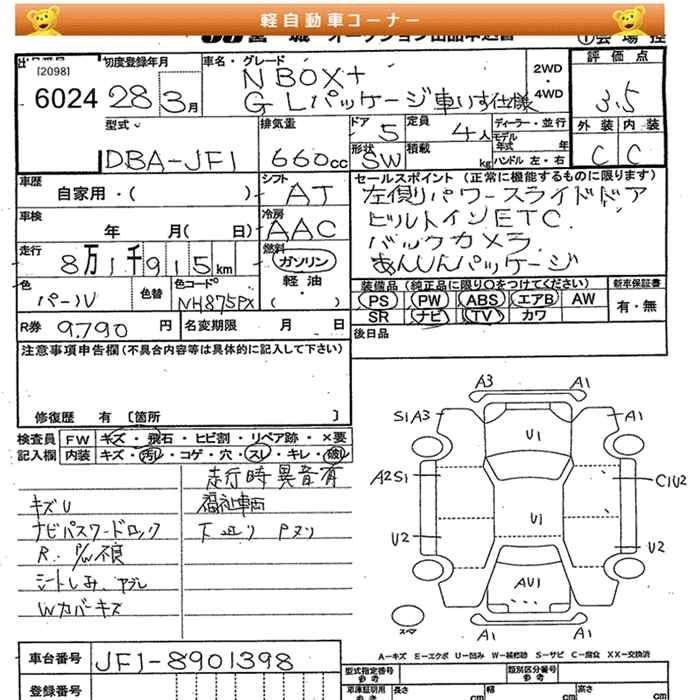 軽自動車コーナー
評価点
[2098]
6024
初度登録年月
28 3月
車名・グレード
N BOX+
G Lパッケージ 車いす仕様
2WD
・
4WD
3.5
外装 内装
C C
型式
DBA-JF1
排気量
660cc
ドア 5
定員 4人
形状 SW
積載 kg
ディーラー・並行
モデル年式 年
ハンドル 左・右
車歴
自家用・( )
シフト
AT
車検
年 月( 日)
冷房
AAC
走行
8万1千915km
燃料
ガソリン
軽油
( )
色
パール
色替
色コード
NH875PX
R券 9,790 円
名変期限 月 日
セールスポイント(正常に機能するものに限ります)
左側パワースライドドア
ビルトインETC.
バックカメラ.
あんしんパッケージ
装備品(純正品に限り○をつけてください)
PS PW ABS エアB AW
SR ナビ TV カワ
新車保証書
有・無
後日品
注意事項申告欄(不具合内容等は具体的に記入して下さい)
修復歴 有 〔箇所 〕
検査員
記入欄
FW キズ・飛石・ヒビ割・リペア跡・×要
内装 キズ・汚れ・コゲ・穴・スレ・キレ・破れ
走行時異音有
キズU
福祉車両
ナビパスワードロック
下廻り Pヌリ
R. P/W不良
シートしみ、
Wカバーキズ
A3 A1
S1A3 A1
U1
A2S1 C1U2
U1
U2 U2
AU1
A1 A1
スペア
A－キズ E－エクボ U－凹み W－補修跡 S－サビ C－腐食 XX－交換済
車台番号
JF1-8901398
登録番号
型式指定番号
参考
類別区分番号
参考
車庫証明用
参考
長さ cm
幅 cm
高さ cm